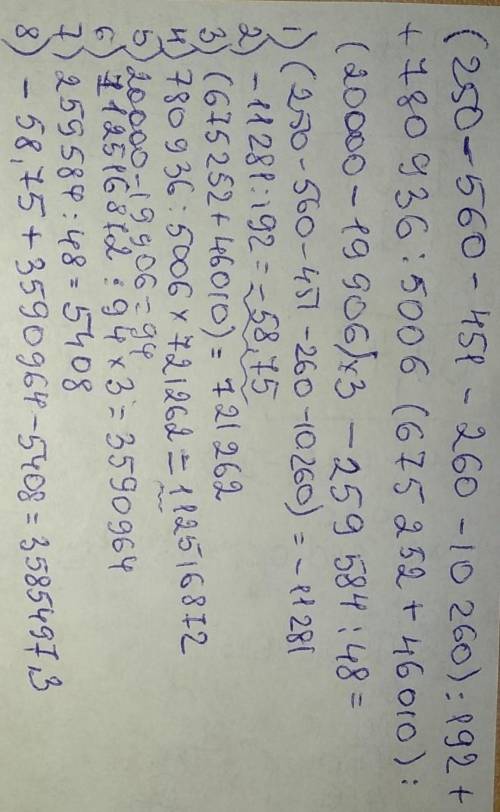 (250-560-451-260-10260):192+
+780936:5006(675252+46010):
(20000-19906)×3-259584:48=
1) (250-560-451-260-10260)=-11281
2) -11281:192=-58,75
3) (675252+46010)=721262
4) 780936:5006×721262=112516872
5) 20000-19906=94
6) 112516872:94×3=3590964
7) 259584:48=5408
8) -58,75+3590964-5408=3585497,3